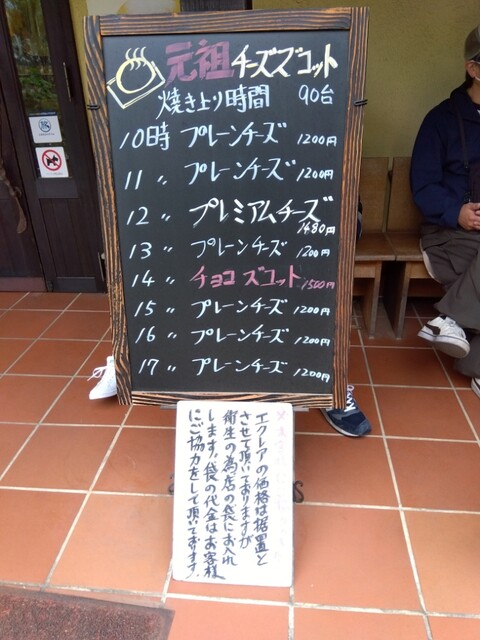 元祖チーズズコット
焼き上り時間 90台
10時 プレーンチーズ 1200円
11 〃 プレーンチーズ 1200円
12 〃 プレミアムチーズ 1480円
13 〃 プレーンチーズ 1200円
14 〃 チョコズコット 1500円
15 〃 プレーンチーズ 1200円
16 〃 プレーンチーズ 1200円
17 〃 プレーンチーズ 1200円
エクレアの価格は据置と
させて頂いておりますが
衛生の為店の袋にお入れ
します!袋の代金はお客様
にご協力をして頂いております。